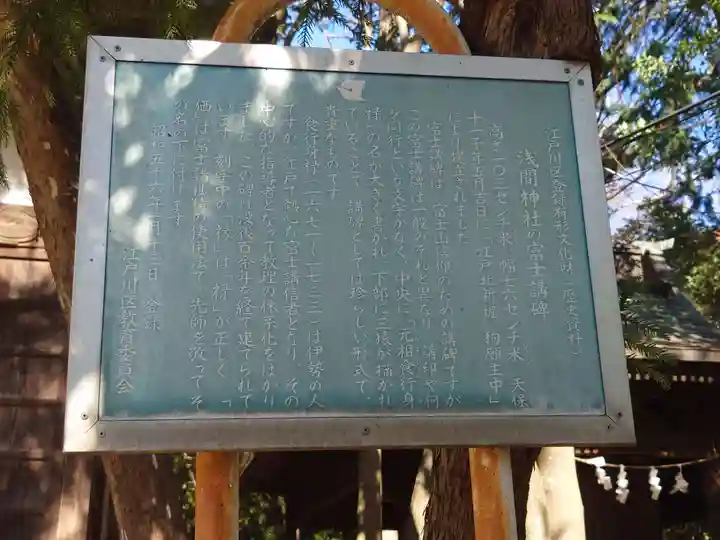 江戸川区登録有形文化財(歴史資料)
浅間神社の富士講碑
高さ一〇三センチ米、幅七六センチ米、天保
十一子年五月吉日に「江戸北新堀 為願主中」
により建立されました。
富士講碑は、富士山信仰のための講碑ですが
この富士講碑は一般のそれと異なり、講印や何
々同行という文字がなく、中央に「元祖食行身
禄」の名が大きく書かれ、下部に三猿が描かれ
ていることで、講碑としては珍らしい形式で、
貴重なものです。
食行身禄(一六七一~一七三三)は伊勢の人
ですが、江戸で熱心な富士講信者となり、その
中心的な指導者となって教理の体系化をはかり
ました。この碑は歿後百余年を経て建てられて
います。刻字中の「禄」は「禄」が正しく、「
価」は富士講用語の使用法で、先師を敬ってそ
の名の下に付けます。
昭和五十六年一月十三日 登録
江戸川区教育委員会